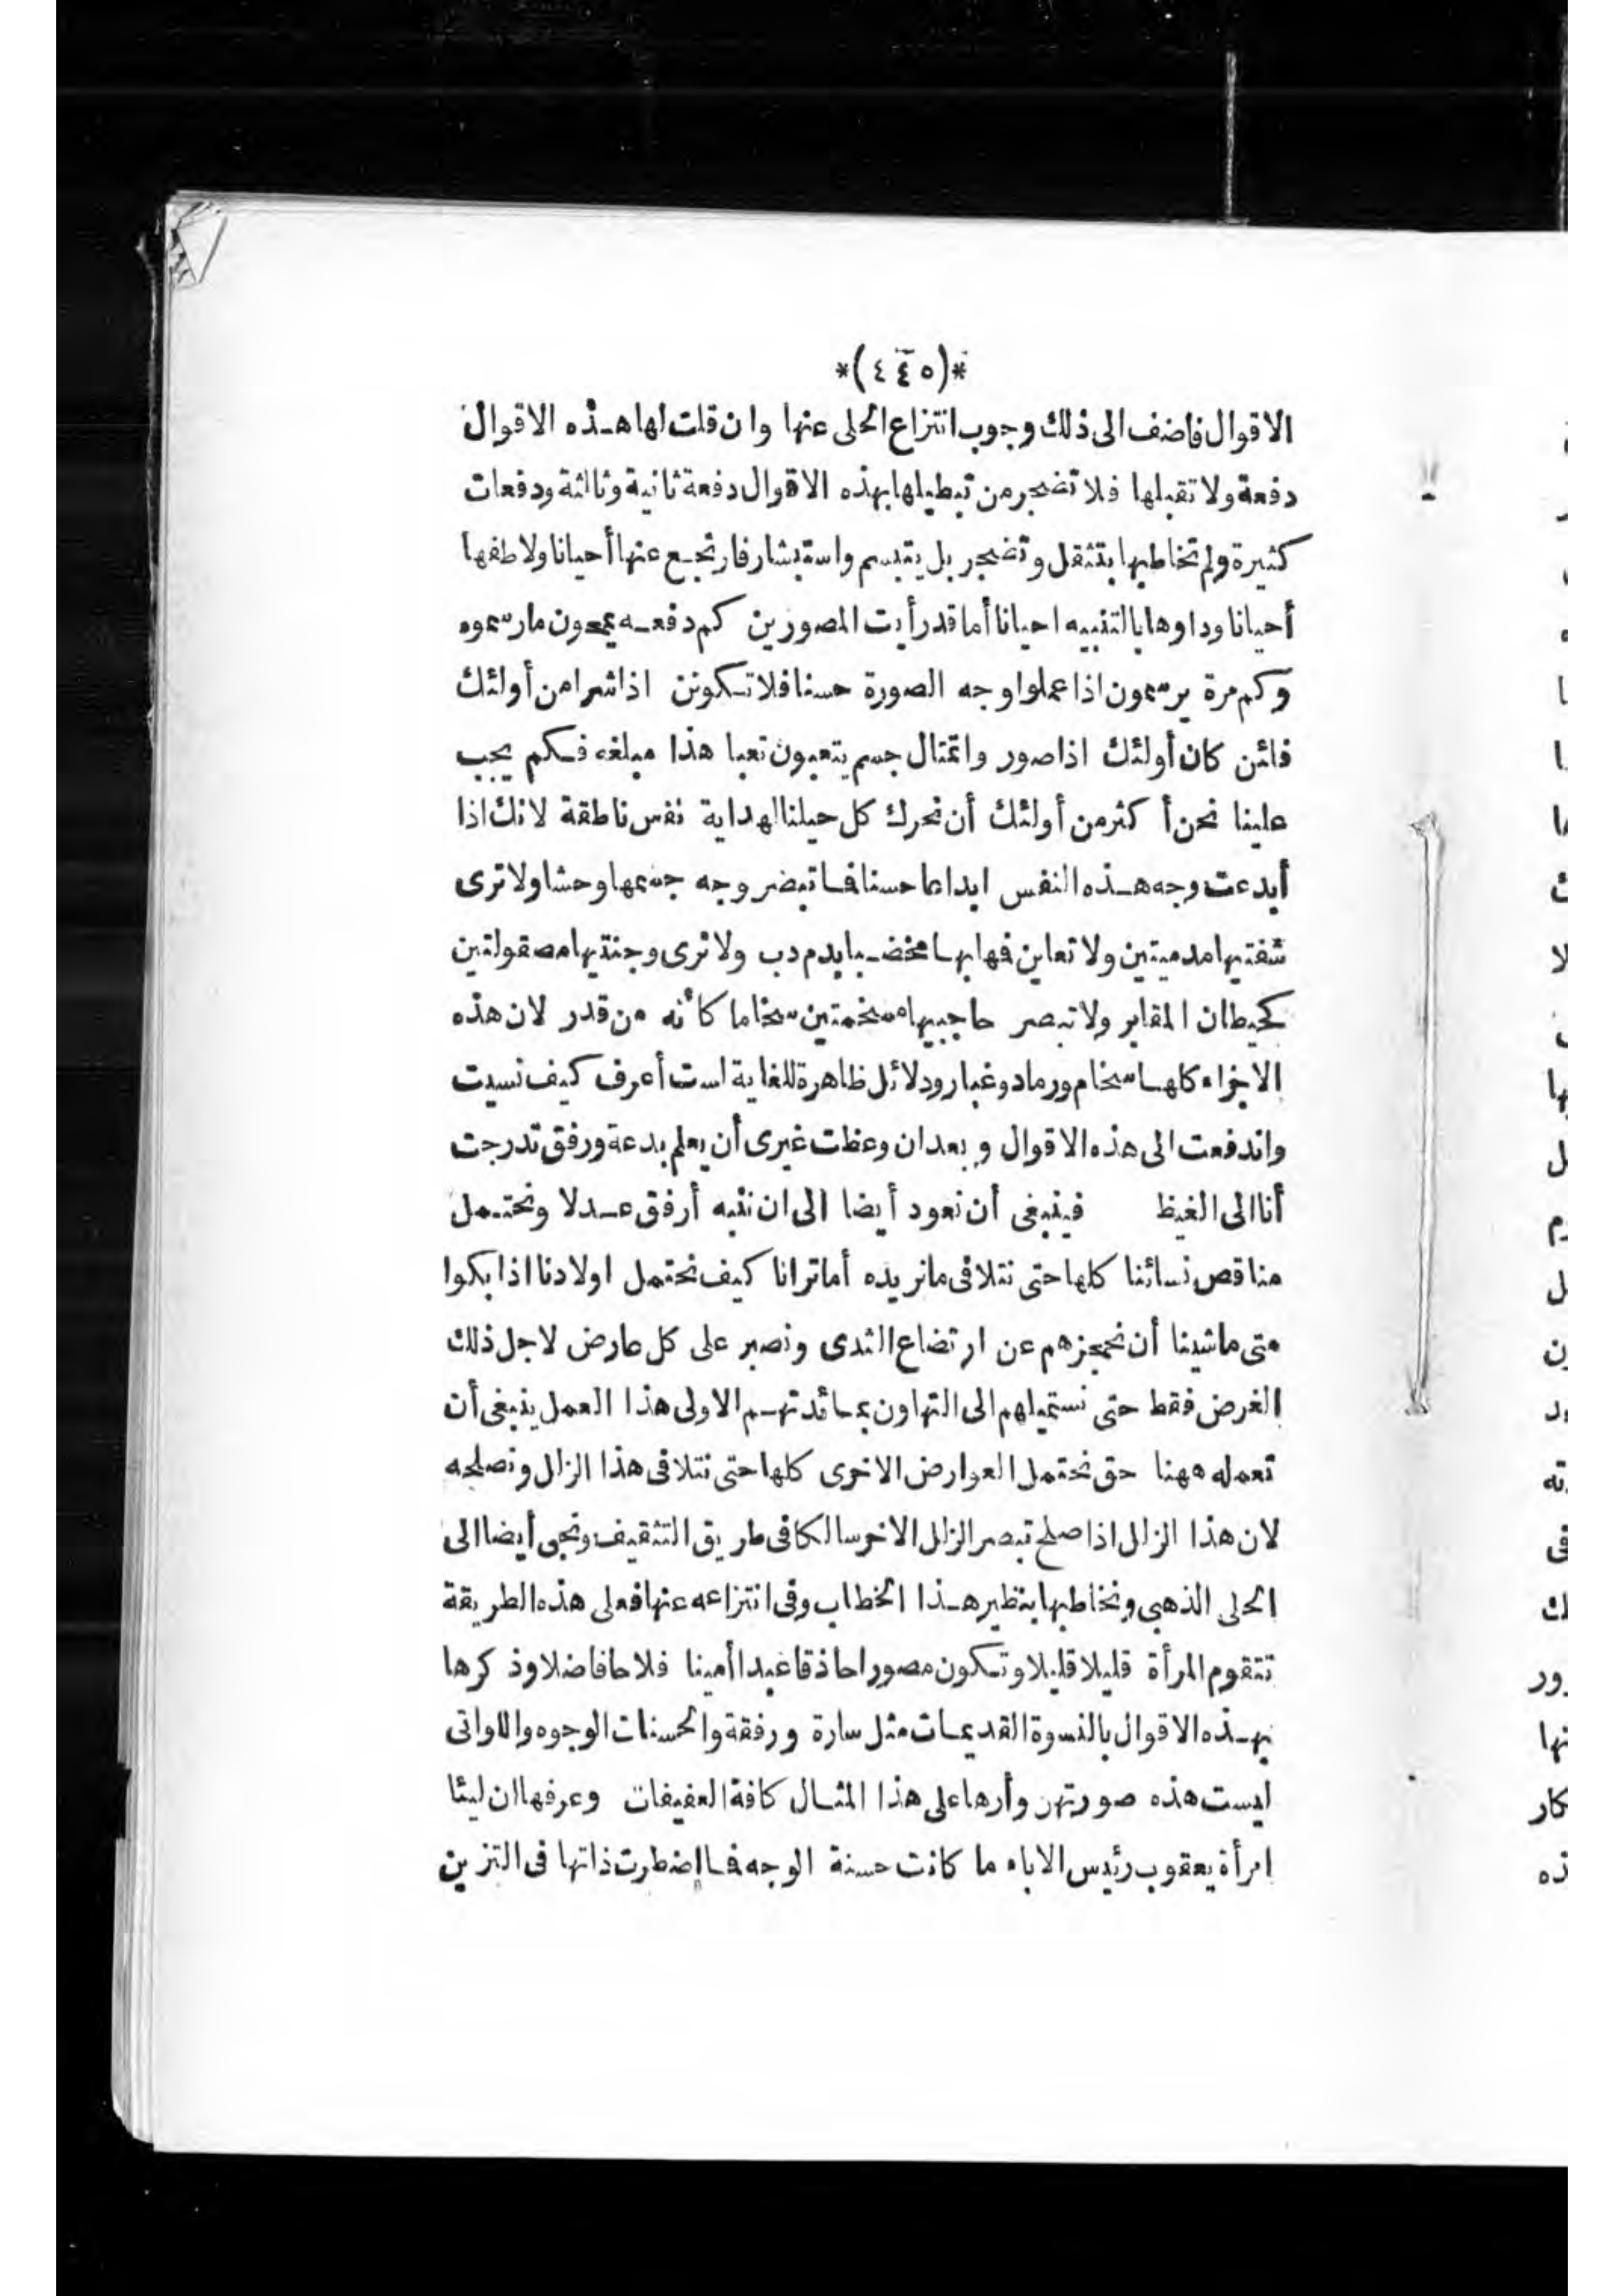 *(٤٤٥)*
الاقوال فاضف الى ذلك وجوب انتزاع الحلى عنها وان قلت لها هذه الاقوال
دفعة ولا تقبلها فلا تضجر من تبطيلها بهذه الاقوال دفعة ثانية وثالثة ودفعات
كثيرة ولم تخاطبها بتثقل وتضجر بل بتبسم واستبشار فارتجع عنها أحيانا ولاطفها
أحيانا وداوها بالتنبيه احيانا أما قد رأيت المصورين كم دفعه يمحون ما رسموه
وكم مرة يرسمون اذا عملوا وجه الصورة حسنا فلا تكونن اذا شرا من أولئك
فائن كان أولئك اذا صور واتمثال جسم يتعبون تعبا هذا مبلغه فكم يجب
علينا نحن أكثر من أولئك أن نحرك كل حيلنا لهداية نفس ناطقة لانك اذا
أبدعت وجه هذه النفس ابداعا حسنا فما تبضر وجه جسمها وحشا ولا ترى
شفتيها مدميتين ولا تعاين فها بها مخضبا بدم دب ولا ترى وجنتيها مصقولتين
كحيطان المقابر ولا تبصر حاجبيها مسخمتين سخاما كأنه من قدر لان هذه
الاجزاء كلها سخام ورماد وغبار ودلائل ظاهرة للغاية لست أعرف كيف نسيت
واندفعت الى هذه الاقوال وبعد ان وعظت غيرى أن يعلم بدعة ورفق تدرجت
أنا الى الغيظ فينبغى أن نعود أيضا الى ان ننبه أرفق عدلا ونحتمل
مناقص نسائنا كلها حتى نتلافى ما نريده أما ترانا كيف نحتمل اولادنا اذا بكوا
متى ما شينا أن نحجزهم عن ارتضاع الثدى ونصبر على كل عارض لاجل ذلك
الغرض فقط حتى نستميلهم الى التهاون بمائدتهم الاولى هذا العمل ينبغى أن
تعمله ههنا حق نحتمل العوارض الاخرى كلها حتى نتلافى هذا الزلل ونصلحه
لان هذا الزلل اذا صلح تبصر الزلل الاخر سالكا فى طريق التثقيف ونجى أيضا الى
الحلى الذهبى ونخاطبها بنظير هذا الخطاب وفى انتزاعه عنها فعلى هذه الطريقة
تتقوم المرأة قليلا قليلا وتكون مصورا حاذقا عبدا أمينا فلاحا فاضلا وذكرها
بهذه الاقوال بالنسوة القديمات مثل سارة ورفقة والحسنات الوجوه واللواتى
ليست هذه صورتهن وأرها على هذا المثال كافة العفيفات وعرفها ان ليئا
امرأة يعقوب رئيس الاباء ما كانت حسنة الوجه فما اضطرت ذاتها فى التزين